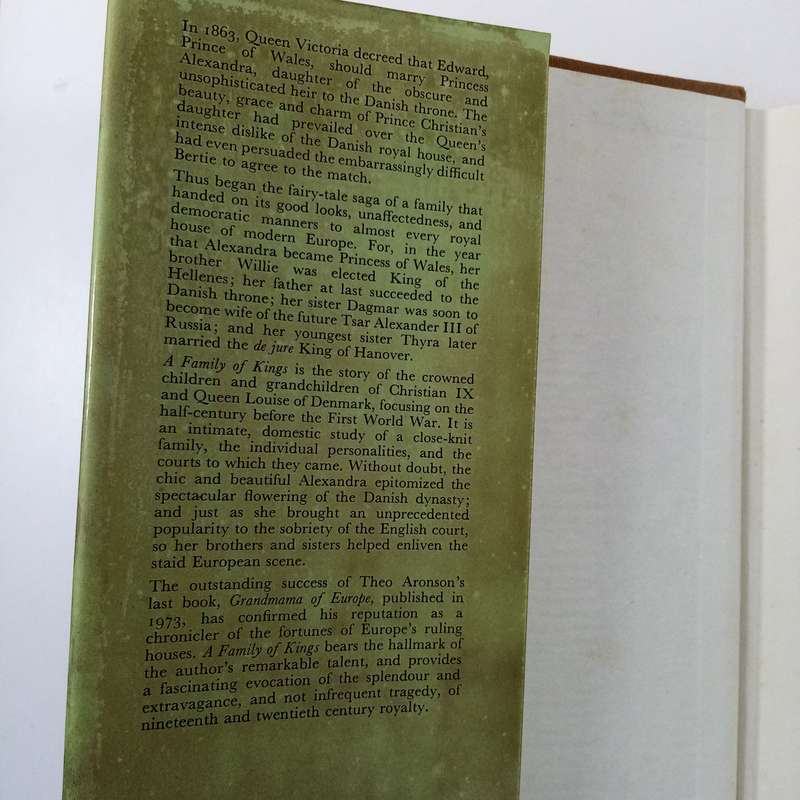 In 1863, Queen Victoria decreed that Edward,
Prince of Wales, should marry Princess
Alexandra, daughter of the obscure and
unsophisticated heir to the Danish throne. The
beauty, grace and charm of Prince Christian's
daughter had prevailed over the Queen's
intense dislike of the Danish royal house, and
had even persuaded the embarrassingly difficult
Bertie to agree to the match.
Thus began the fairy-tale saga of a family that
handed on its good looks, unaffectedness, and
democratic manners to almost every royal
house of modern Europe. For, in the year
that Alexandra became Princess of Wales, her
brother Willie was elected King of the
Hellenes; her father at last succeeded to the
Danish throne; her sister Dagmar was soon to
become wife of the future Tsar Alexander III of
Russia; and her youngest sister Thyra later
married the de jure King of Hanover.
A Family of Kings is the story of the crowned
children and grandchildren of Christian IX
and Queen Louise of Denmark, focusing on the
half-century before the First World War. It is
an intimate, domestic study of a close-knit
family, the individual personalities, and the
courts to which they came. Without doubt, the
chic and beautiful Alexandra epitomized the
spectacular flowering of the Danish dynasty;
and just as she brought an unprecedented
popularity to the sobriety of the English court,
so her brothers and sisters helped enliven the
staid European scene.
The outstanding success of Theo Aronson's
last book, Grandmama of Europe, published in
1973, has confirmed his reputation as a
chronicler of the fortunes of Europe's ruling
houses. A Family of Kings bears the hallmark of
the author's remarkable talent, and provides
a fascinating evocation of the splendour and
extravagance, and not infrequent tragedy, of
nineteenth and twentieth century royalty.